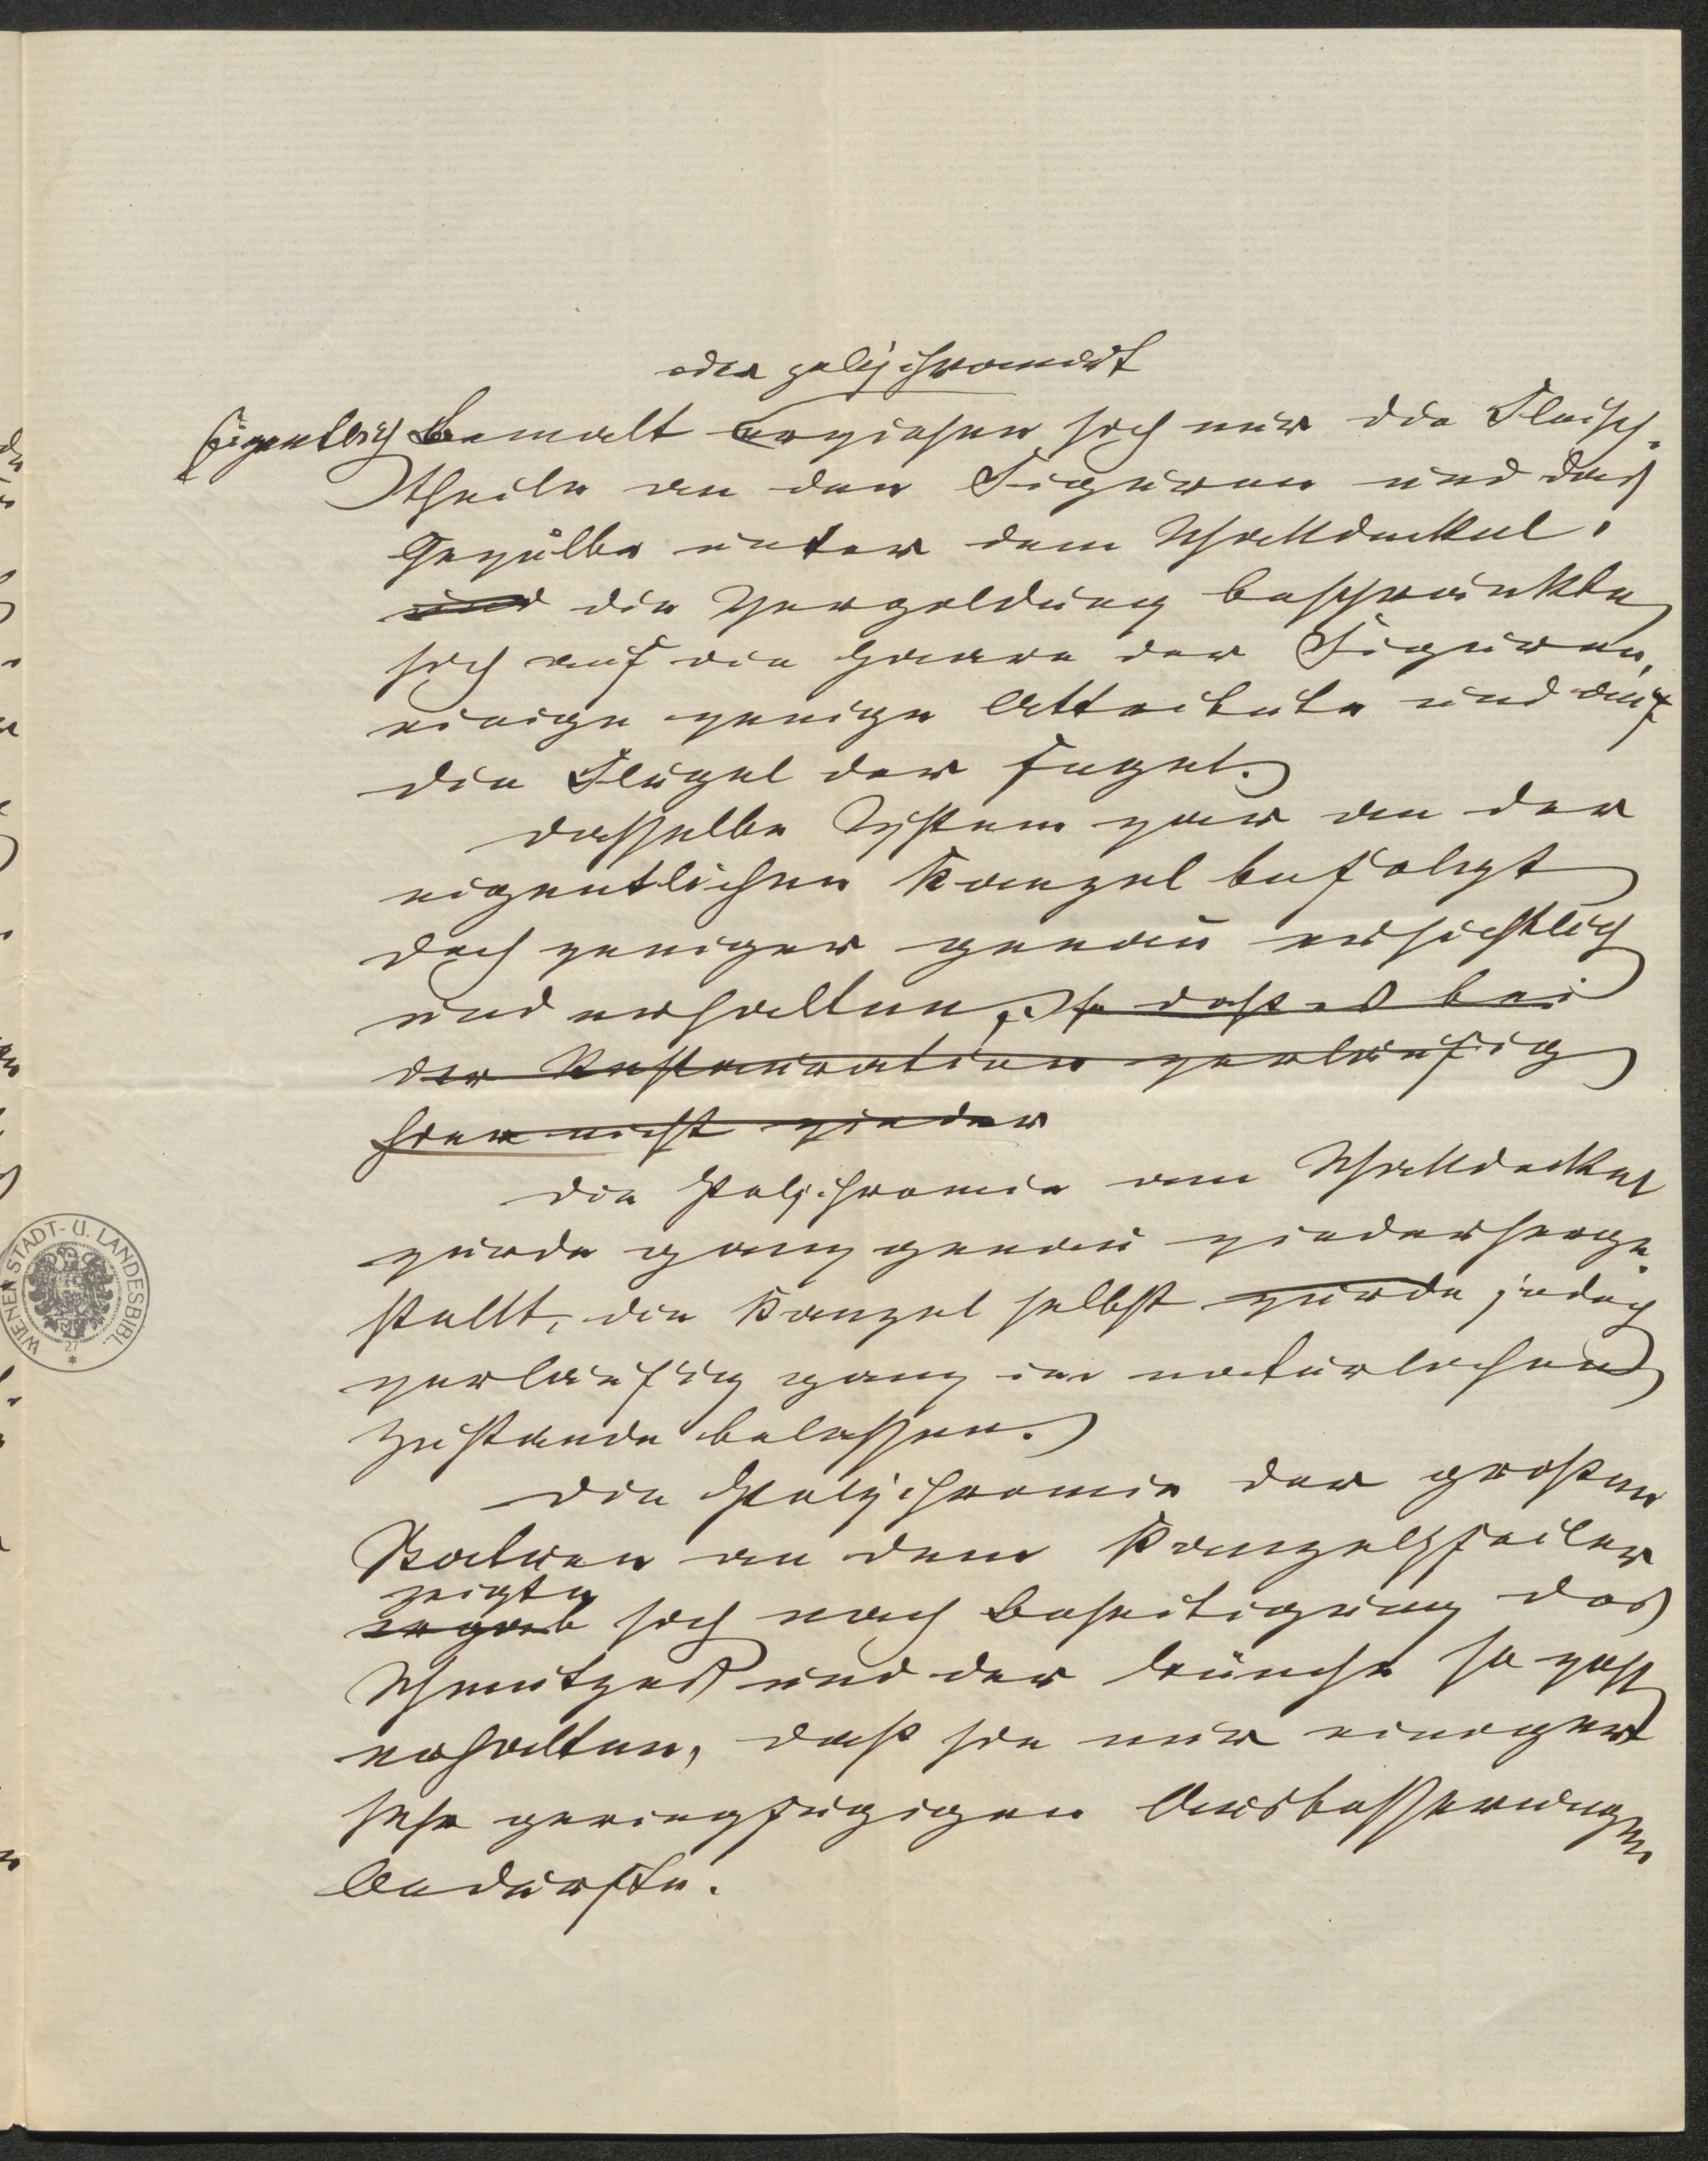 oder polychromirt
Eigentlich Bemalt erwiesen sich nur die Fleisch-
theile an den Figuren und das
Gewölbe unter dem Schalldeckel.
und die Vergoldung beschränkte
sich auf die Haare der Figuren,
einige wenige Attribute und auf
die Flügel der Engel.
dasselbe System war an der
eigentlichen Kanzel befolgt
doch weniger genau ersichtlich
und erhalten, so daß es bei
der Restauration vorläufig
hier nicht wieder
Die Polychromie am Schalldeckel
wurde ganz genau wiederherge-
stellt, die Kanzel selbst wurde jedoch
vorläufig ganz im natürlichen
Zustande belassen.
Die Polychromie der großen
an dem Kanzelpfeiler
zeigte
ergab sich nach Beseitigung des
Schmutzes und der Tünche so gut
erhalten, daß sie nur einiger
sehr geringfügigen Ausbesserungen
bedurfte.
WIENER STADT- U. LANDESBIBL.
27